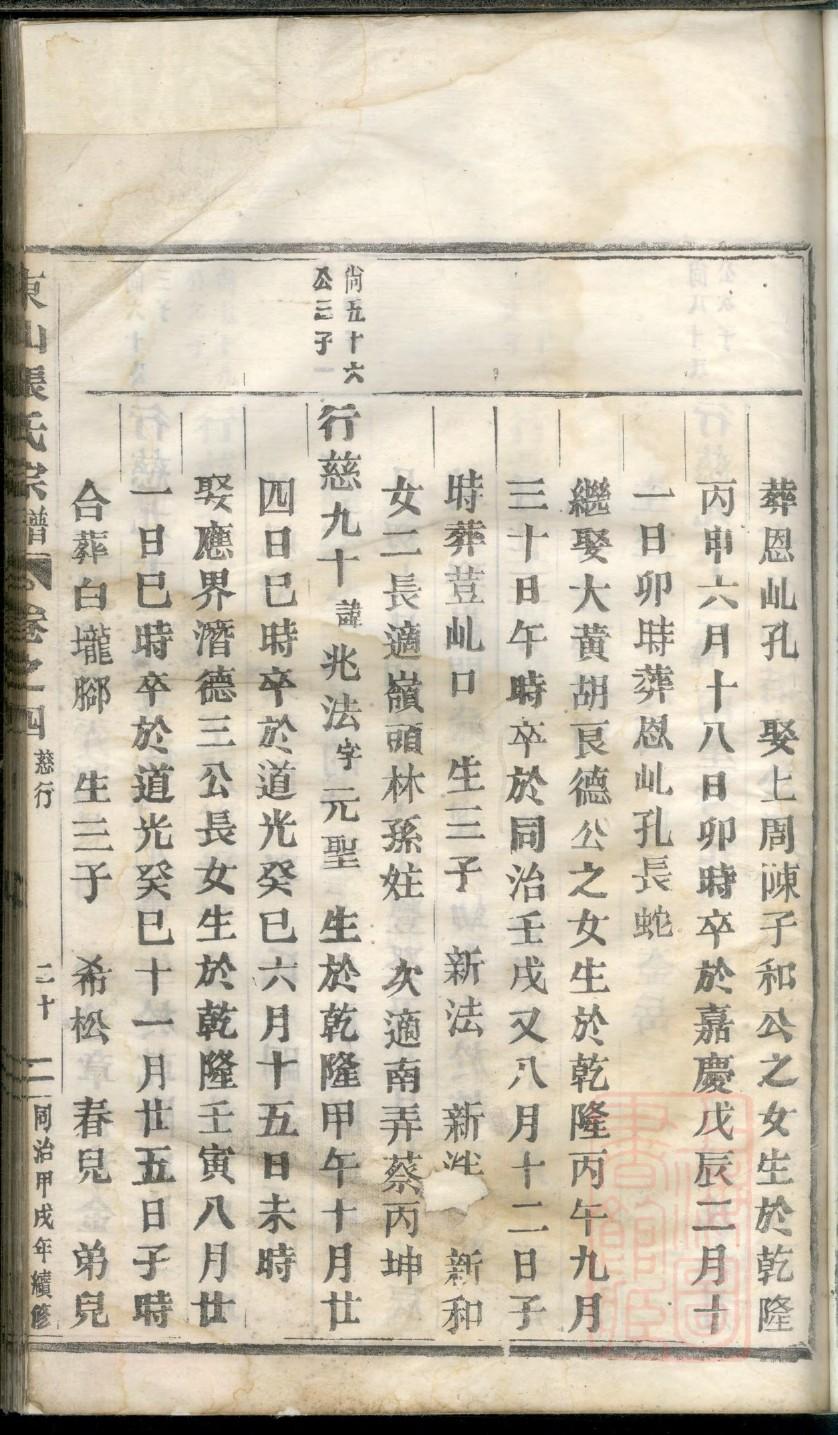 葬恩乢孔　娶上周陳子和公之女生於乾隆
丙申六月十八日卯時卒於嘉慶戊辰二月十
一日卯時葬恩乢孔長蛇
繼娶大黃胡良德公之女生於乾隆丙午九月
三十日午時卒於同治壬戌又八月十二日子
時葬荳乢口　生三子　新法　新　新和
女二長適嶺頭林孫妵　次適南弄蔡丙坤
尙五十六
公三子一
行慈九十諱兆法字元聖　生於乾隆甲午十月廿
四日巳時卒於道光癸巳六月十五日未時
娶應界潛德三公長女生於乾隆壬寅八月廿
一日巳時卒於道光癸巳十一月廿五日子時
合葬白壠腳　生三子　希松　春兒　弟兒
東山張氏宗譜　卷之四　慈行　二十　同治甲戌年續修